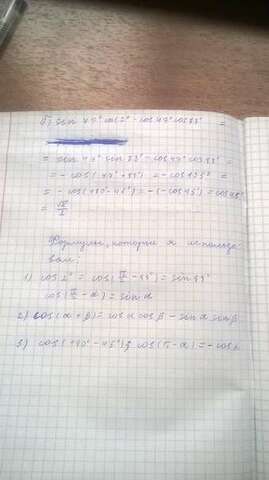 sin 47° cos 2° - cos 47° cos 88° =
= sin 47° sin 88° - cos 47° cos 88° =
= - cos (47° + 88°) = - cos 135° =
= - cos (180° - 45°) = - (- cos 45°) = cos 45° =
= √2/2
Формулы, которые я использо
вал:
1) cos 2° = cos (π/2 - 88°) = sin 88°
cos (π/2 - α) = sin α
2) cos (α + β) = cos α cos β - sin α sin β
3) cos (180° - 45°) cos (π - α) = - cos α